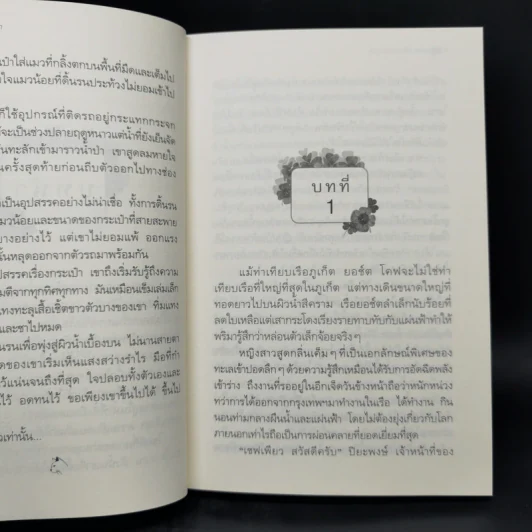 เป๋าใส่แมวที่กลิ้งตกบนพื้นที่มืดและเต็มไป
ใจแมวน้อยที่ดิ้นรนประท้วงไม่ยอมเข้าไป
ก็ใช้อุปกรณ์ที่ติดรถอยู่กระแทกกระจก
จะเป็นช่วงปลายฤดูหนาวแต่น้ำที่ยังเย็นจัด
นทะลักเข้ามาราวน้ำป่า เขาสูดลมหายใจ
นครั้งสุดท้ายก่อนถีบตัวออกไปทางช่อง
เป็นอุปสรรคอย่างไม่น่าเชื่อ ทั้งการดิ้นรน
แมวน้อยและขนาดของกระเป๋าที่สายสะพาย
บางอย่างไว้ แต่เขาไม่ยอมแพ้ ออกแรง
นั้นหลุดออกจากตัวรถมาพร้อมกัน
ปสรรคเรื่องกระเป๋า เขาถึงเริ่มรับรู้ถึงความ
มตีจากทุกทิศทุกทาง มันเหมือนเข็มเล่มเล็ก
แทงทะลุเสื้อเชิ้ตขาวตัวบางของเขา ทิ่มแทง
และชาไปหมด
นรนเพื่อพุ่งสู่ผิวน้ำเบื้องบน ไม่นานสายตา
ดของเขาเริ่มเห็นแสงสว่างรำไร มือที่กำ
ไว้แน่นจนถึงที่สุด ใจปลอบทั้งตัวเองและ
ไว้ อดทนไว้ ขอเพียงเขาขึ้นไปได้ ขึ้นไป
วเท่านั้น...
บทที่
1
แม้ท่าเทียบเรือภูเก็ต ยอช์ต โคฟจะไม่ใช่ท่า
เทียบเรือที่ใหญ่ที่สุดในภูเก็ต แต่ทางเดินขนาดใหญ่ที่
ทอดยาวไปบนผิวน้ำสีคราม เรือยอช์ตลำเล็กนับร้อยที่
ลดใบเหลือแต่เสากระโดงเรียงรายทาบทับกับแผ่นฟ้าทำให้
พริมารู้สึกว่าหล่อนตัวเล็กจ้อยจริงๆ
หญิงสาวสูดกลิ่นเค็มๆ ที่เป็นเอกลักษณ์พิเศษของ
ทะเลเข้าปอดลึกๆ ด้วยความรู้สึกเหมือนได้รับการอัดฉีดพลัง
เข้าร่าง ถึงงานที่รออยู่ในอีกเจ็ดวันข้างหน้าถือว่าหนักหน่วง
ทว่าการได้ออกจากกรุงเทพฯ มาทำงานในเรือ ได้ทำงาน กิน
นอนท่ามกลางผืนน้ำและแผ่นฟ้า โดยไม่ต้องยุ่งเกี่ยวกับโลก
ภายนอกเท่าไรถือเป็นการผ่อนคลายที่ยอดเยี่ยมที่สุด
“เชฟเพียว สวัสดีครับ” ปิยะพงษ์ เจ้าหน้าที่ของ